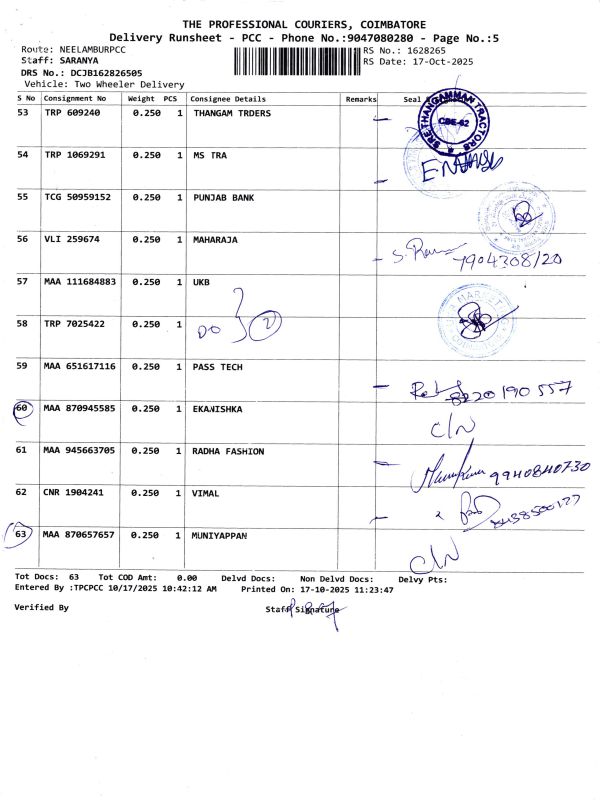 THE PROFESSIONAL COURIERS, COIMBATORE
Delivery Runsheet - PCC - Phone No.:9047080280 - Page No.:5
Route: NEELAMBURPCC
RS No.: 1628265
Staff: SARANYA
RS Date: 17-Oct-2025
DRS No.: DCJB162826505
Vehicle: Two Wheeler Delivery
S No Consignment No Weight PCS Consignee Details Remarks Seal
53 TRP 609240 0.250 1 THANGAM TRDERS
SREE THANGAMMAN TRACTORS
CBE-62
54 TRP 1069291 0.250 1 MS TRA
55 TCG 50959152 0.250 1 PUNJAB BANK
56 VLI 259674 0.250 1 MAHARAJA
7904308120
57 MAA 111684883 0.250 1 UKB
58 TRP 7025422 0.250 1 DO 2
59 MAA 651617116 0.250 1 PASS TECH
8220190557
60 MAA 870945585 0.250 1 EKANISHKA
C/N
61 MAA 945663705 0.250 1 RADHA FASHION
9940840730
62 CNR 1904241 0.250 1 VIMAL
63 MAA 870657657 0.250 1 MUNIYAPPAN
C/N
Tot Docs: 63 Tot COD Amt: 0.00 Delvd Docs: Non Delvd Docs: Delvy Pts:
Entered By :TPCPCC 10/17/2025 10:42:12 AM Printed On: 17-10-2025 11:23:47
Verified By
Staff Signature